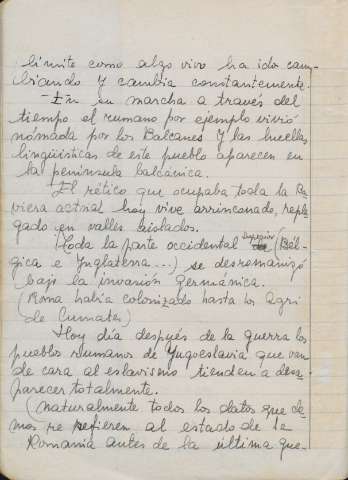 límite como algo vivo ha ido cam-
biando y cambia constantemente.
En su marcha a través del
tiempo el rumano por ejemplo vivió
nómada por los Balcanes y las huellas
lingüísticas de este pueblo aparecen en
la península balcánica.
El rético que ocupaba toda la Ba
viera actual hoy vive arrinconado, reple
gado en valles aislados.
Toda la parte occidental superior (Bél-
gica e Ynglaterra...) se desromanizó
bajo la invasión germánica.
(Roma había colonizado hasta los Agri
de Cumates)
Hoy día despyés de la guerra los
pueblos rumanos de Yugoeslavia que van
de cara al eslavismo tienden a desa
parecer totalmente.
(naturalmente todos los datos que de
mos se refieren al estado de la
Romania antes de la última gue-